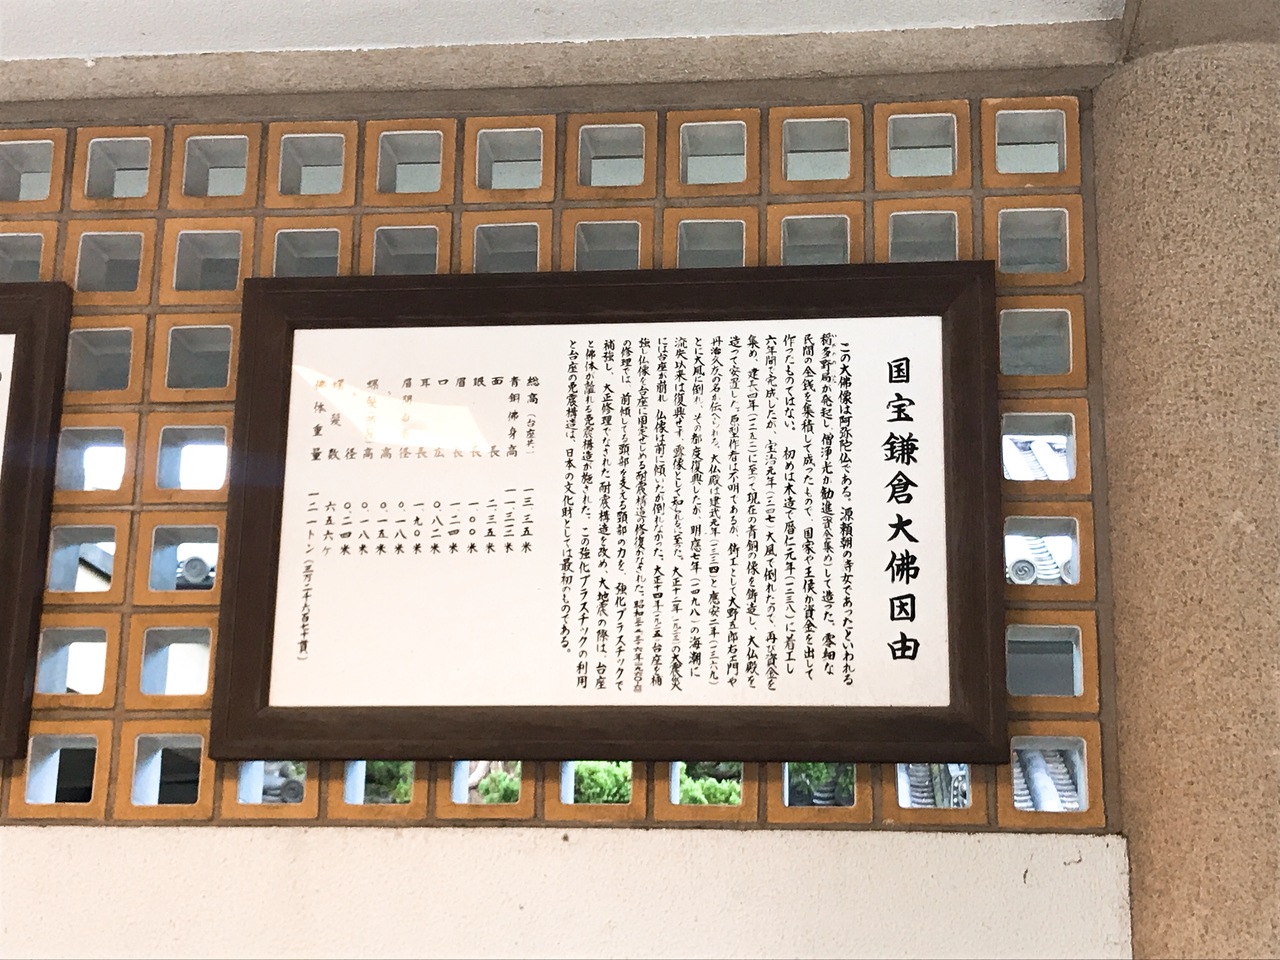 国宝鎌倉大佛因由
この大佛像は阿弥陀仏である。源頼朝の侍女であったといわれる
稲多野局が発起し、僧浄光が勧進(資金集め)して造った。零細な
民間の金銭を集積して成ったもので、国家や王侯が資金を出して
作ったものではない。初めは木造で暦仁元年(一二三八)に着工し
六年間で完成したが、宝治元年(一二四七)大風で倒れたので、再び資金を
集め、建長四年(一二五二)に至って現在の青銅の像を鋳造し、大仏殿を
造って安置した。原型作者は不明であるが、鋳工として大野五郎右エ門や
丹治久友の名が伝へられる。大仏殿は建武元年(一三三四)と應安二年(一三六九)
とに大風に倒れ、その都度復興したが、明應七年(一四九八)の海潮に
流失以来は復興せず、露像として知られるに至った。大正十二年(一九二三)の大震災
には台座が崩れ、仏像は前に傾いたが倒れなかった。大正十四年(一九二五)台座を補
強し仏像を台座に固定せしめる耐震構造の修復がなされた。昭和
の修理では、前傾してる頭部を支える頸部の力を、強化プラスチックで
補強し、大正修理でなされた耐震構造を改め、大地震の際は、台座
と佛体が離れる免震構造が施された。この強化プラスチックの利用
と台座の免震構造は、日本の文化財としては最初のものである。
総高(台座共) 一三・三五米
青銅佛身高 一一・三一二米
面長 二・三五米
眼長 一・〇〇米
眉長 一・二四米
口広 〇・八二米
耳長 一・九〇米
眉間白毫径 〇・一八米
高 〇・一八米
径 〇・二四米
螺髪数 六五六ケ
佛体重量 一二一トン(三万二千六百七十貫)